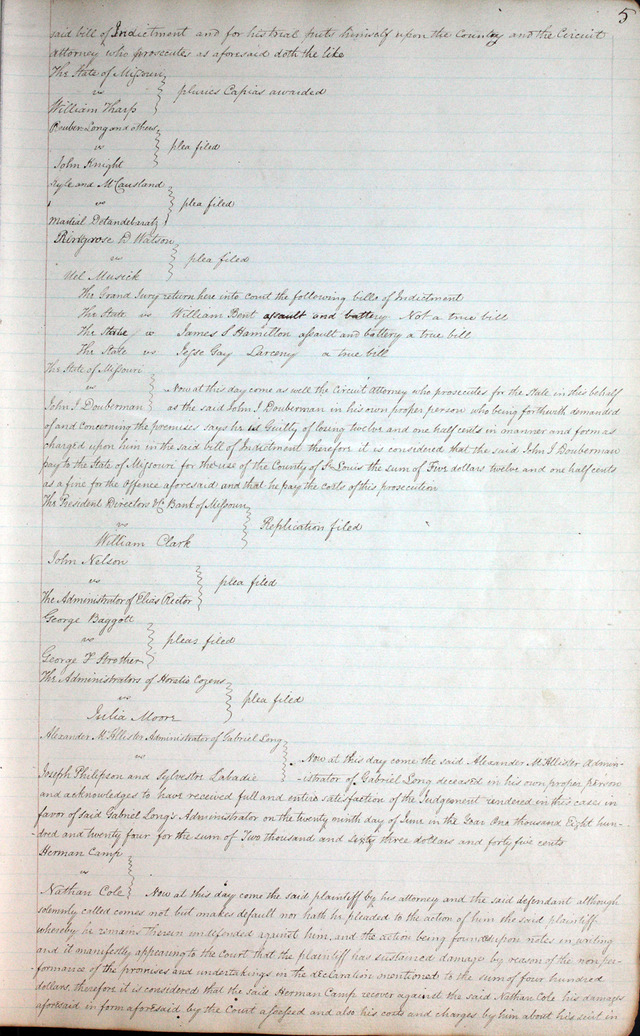 5
said bill of Indictment and for his trial puts himself upon the Country and the Circuit
attorney who prosecutes as aforesaid doth the like
The State of Missouri
vs
pluries Capias awarded
William Tharp
Reuben Long and others
vs
plea filed
John Knight
Lyle and McCausland
vs
plea filed
Martial Detandebaratz
Ringrose D. Watson
vs
plea filed
Uel Musick
The Grand Jury return here into court the following bills of Indictment
The State vs William Bent assault and battery Not a true bill
The State vs James S Hamilton assault and battery a true bill
The State vs Jesse Gay Larceny a true bill
The State of Missouri
vs
Now at this day come as well the Circuit Attorney who prosecutes for the State in this behalf
John I Douberman as the said John I Douberman in his own proper person who being forthwith demanded
of and concerning the premises says he is Guilty of losing twelve and one half cents in manner and form as
charged upon him in the said bill of Indictment therefore it is considered that the said John I Douberman
pay to the State of Missouri for the use of the County of St Louis the sum of Five dollars twelve and one half cents
as a fine for the offence aforesaid and that he pay the costs of this prosecution
The President Directors &c Bank of Missouri
vs
Replication filed
William Clark
John Nelson
vs
plea filed
The Administrator of Elias Rector
George Baggott
vs
pleas filed
George F Strother
The Administrators of Horatio Cozens
vs
plea filed
Julia Moore
Alexander McAllister Administrator of Gabriel Long
vs
Now at this day come the said Alexander McAllister Admin-
Joseph Philipson and Sylvestre Labadie -istrator of Gabriel Long deceased in his own proper person
and acknowledges to have received full and entire satisfaction of the Judgement rendered in this cases in
favor of said Gabriel Long's Administrator on the twenty ninth day of June in the Year One thousand Eight hun-
dred and twenty four for the sum of Two thousand and sixty three dollars and forty five cents
Herman Camp
vs
Nathan Cole Now at this day come the said plaintiff by his attorney and the said defendant although
solemnly called comes not but makes default nor hath he pleaded to the action of him the said plaintiff
whereby he remains therein undefended against him, and the action being founded upon notes in writing
and it manifestly appearing to the Court that the plaintiff has sustained damages by reason of the non per-
-formance of the promises and undertakings in the declaration mentioned to the sum of four hundred
dollars, therefore it is considered that the said Herman Camp recover against the said Nathan Cole his damages
aforesaid in form aforesaid by the Court assessed and also his costs and charges by him about his suit in